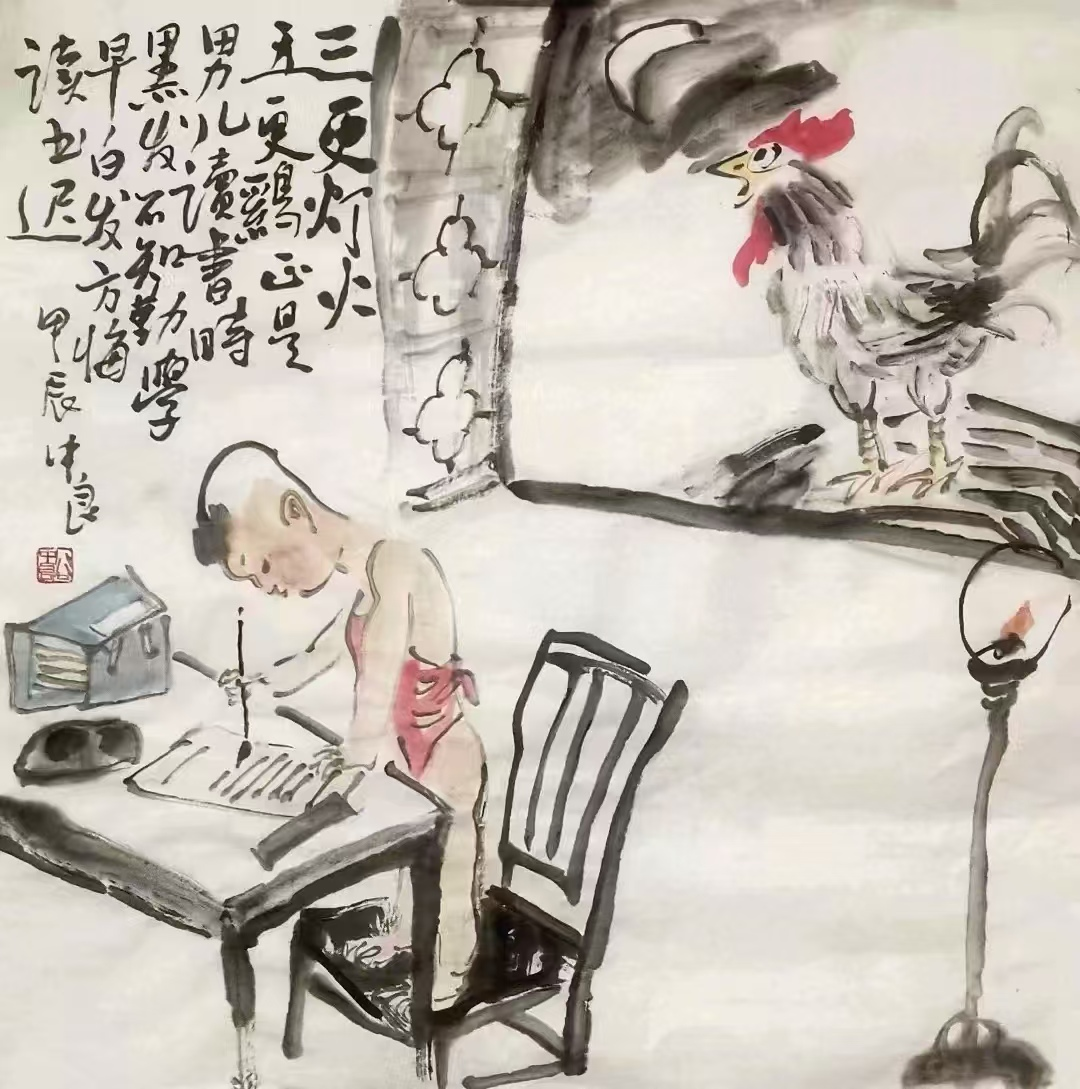 三更灯火
五更鷄正是
男儿讀書時
黑发不知勤學
早白发方悔
读书迟
甲辰
良